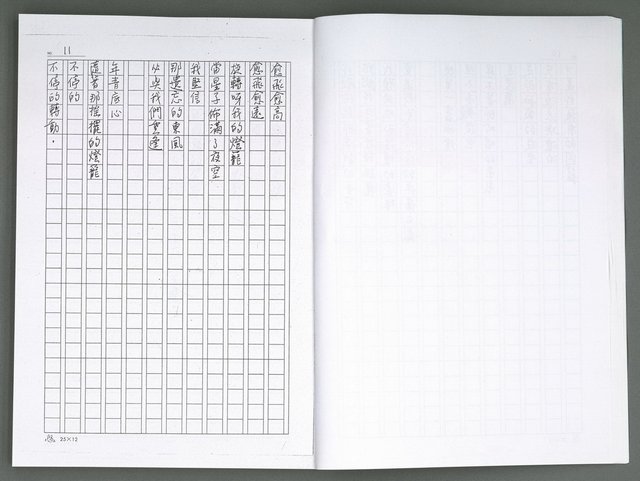 No. 11
愈飛愈高
愈飛愈遠
旋轉呀我的燈籠
當星子佈滿了夜空
我堅信
那遺忘的東風
必與我們重逢
年青底心
隨著那搖擺的燈籠
不停的
不停的轉動．
25×12